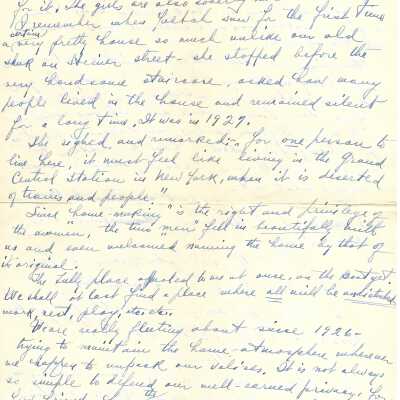 for it, the girls are also
I remember when saw for the first time
a certain very pretty house so much unlike our old
shack on street - she stopped before the
very handsome staircase, asked how many
people lived in the house and remained silent
for a long time. It was in 1927.
She sighed, and remarked: "For one person to
live here, it must feel like living in the Grand
Central Station in New York, when it is deserted
of trains and people."
Since "home-making" is the right and privilege of
the women, the two "men" fell in beautifully with
us and even welcomed naming the home by that of
it original.
The place appealed to us at once, as the
We shall at last find a place where all will be undisturbed
work, rest, play, etc. etc.
We are really fleeting about since 1926 -
trying to maintain the home-atmosphere wherever
we happen to unpack our valises. It is not always
so simple to defend our well-earned privacy. For
the